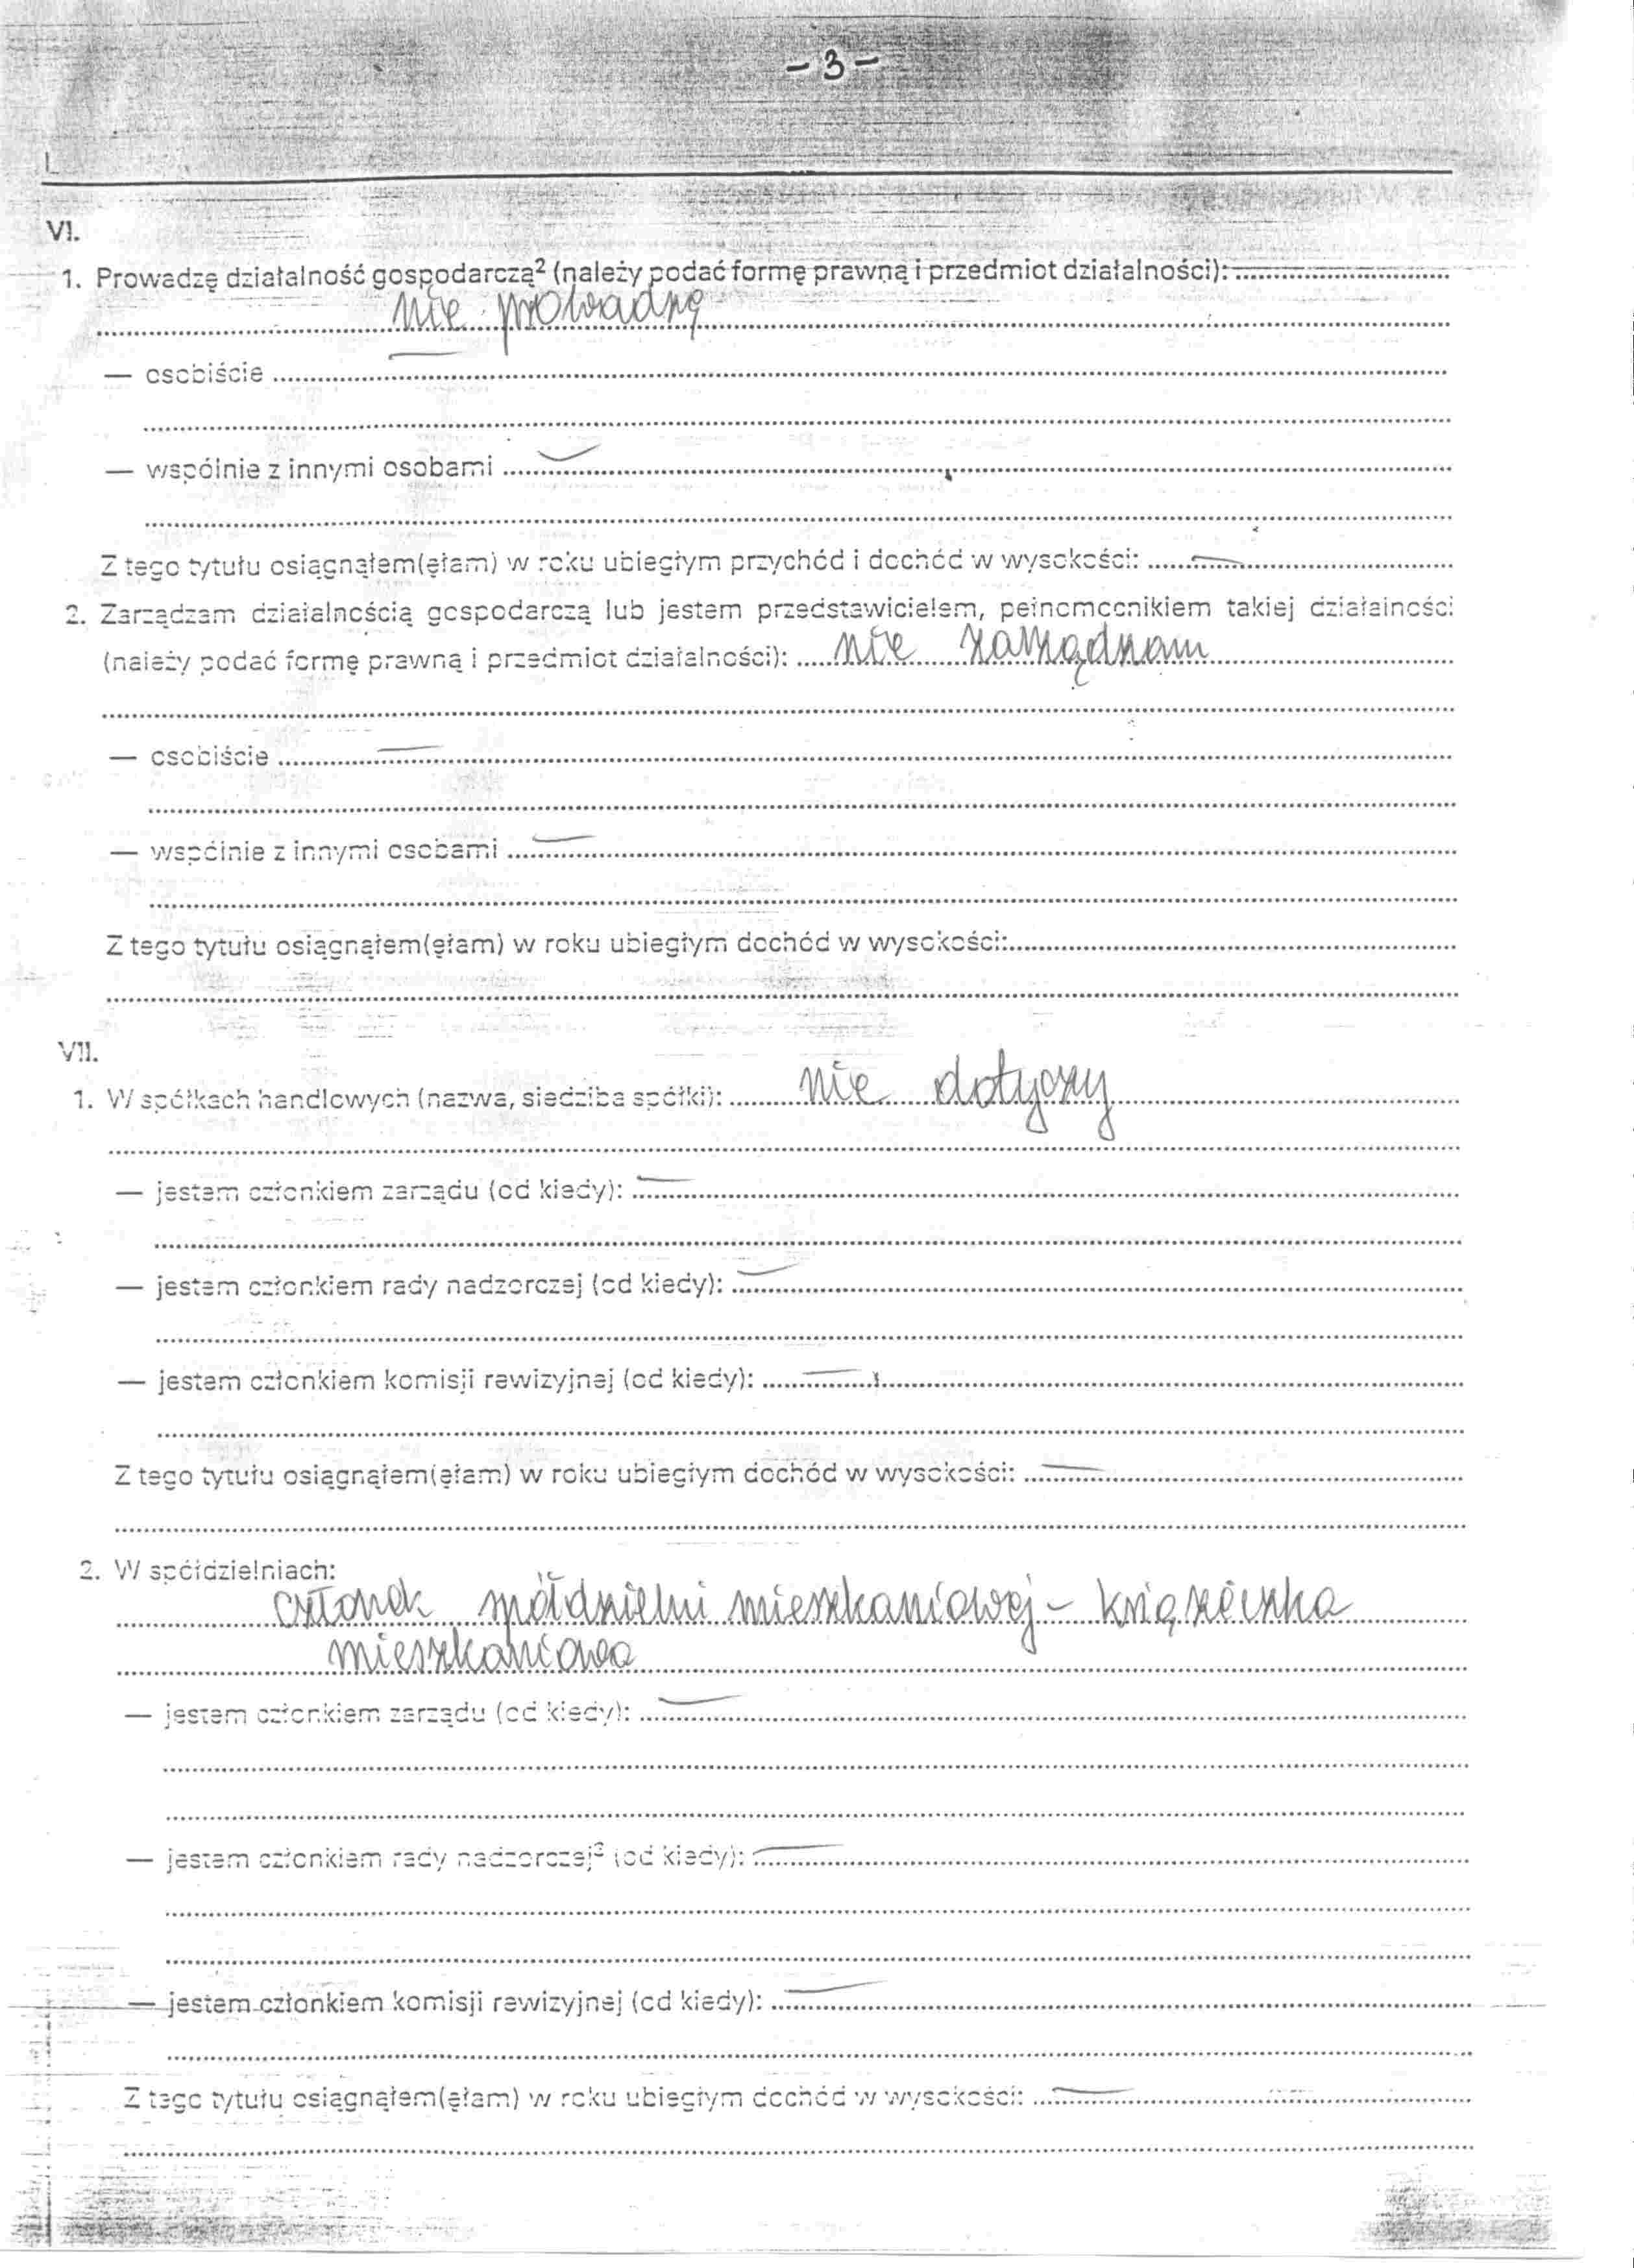 - 3 -
VI.
1. Prowadzę działalność gospodarczą² (należy podać formę prawną i przedmiot działalności):
nie prowadzę
— osobiście —
— wspólnie z innymi osobami —
Z tego tytułu osiągnąłem(ęłam) w roku ubiegłym przychód i dochód w wysokości: —
2. Zarządzam działalnością gospodarczą lub jestem przedstawicielem, pełnomocnikiem takiej działalności
(należy podać formę prawną i przedmiot działalności): nie zarządzam
— osobiście —
— wspólnie z innymi osobami —
Z tego tytułu osiągnąłem(ęłam) w roku ubiegłym dochód w wysokości:
VII.
1. W spółkach handlowych (nazwa, siedziba spółki): nie dotyczy
— jestem członkiem zarządu (od kiedy): —
— jestem członkiem rady nadzorczej (od kiedy): —
— jestem członkiem komisji rewizyjnej (od kiedy): —
Z tego tytułu osiągnąłem(ęłam) w roku ubiegłym dochód w wysokości: —
2. W spółdzielniach:
członek spółdzielni mieszkaniowej - książeczka
mieszkaniowa
— jestem członkiem zarządu (od kiedy): —
— jestem członkiem rady nadzorczej³ (od kiedy): —
— jestem członkiem komisji rewizyjnej (od kiedy): —
Z tego tytułu osiągnąłem(ęłam) w roku ubiegłym dochód w wysokości: —